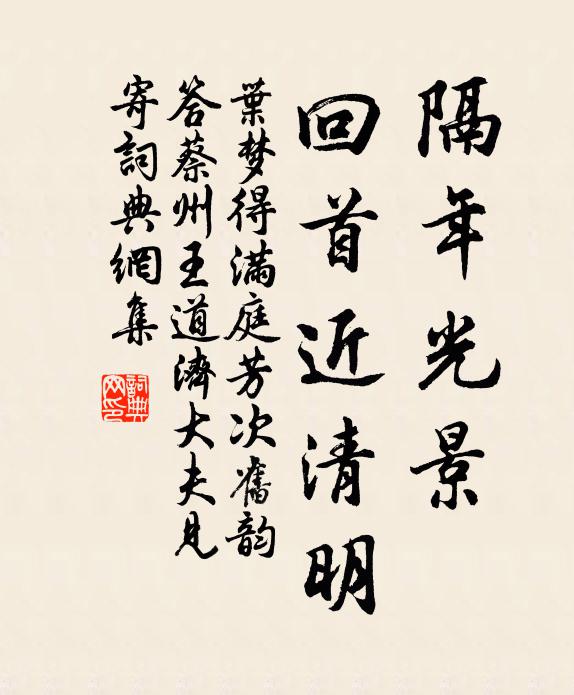 隔年光景
回首近清明
葉梦得滿庭芳次舊韵
答蔡州王道濟大夫見
寄詞典網集
詞典网印